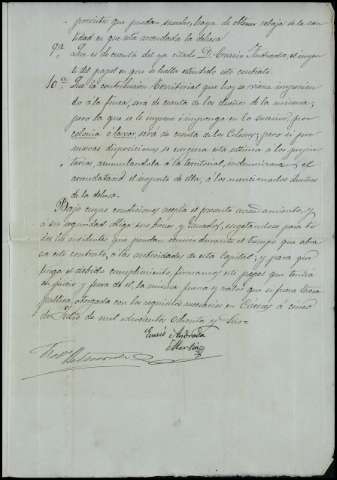 pretexto que puedan suceder, haya de obtener rebaja de la can-
tidad en que está arrendada la dehesa
9ª. Que es de cuenta del ya citado D. Eusebio Andrada, el impor-
te del papel en que se halla extendido este contrato.
10ª. Que la contribucion territorial que hoy se viene imponien-
do a la finca, sera de cuenta de los dueños de la misma;
pero la que se le impone ó imponga en lo sucesivo, por
colonia ó labor, será de cuenta de los Colonos; pero si por
nuevas disposiciones se exigiera esta ultima a los propie-
tarios, acumulandola a la territorial, indemnizará el
arrendatario el importe de ella, á los mencionados dueños
de la dehesa.
Bajo cuyas condiciones acepta el presente arrendamiento, y
a su seguridad obliga sus bienes y ganados, sujetandose para to-
dos los incidentes que puedan ocurrir durante el tiempo que abra-
za este contrato, á las autoridades de esta Capital; y para que
tenga el debido cumplimiento firmamos este papel que tendrá
en juicio y fuera de él, la misma fuerza y valor que si fuera Escra.
publica, otorgada con los requisitos necesarios en Caceres á cinco
de Julio de mil ochocientos ochenta y
Andrada